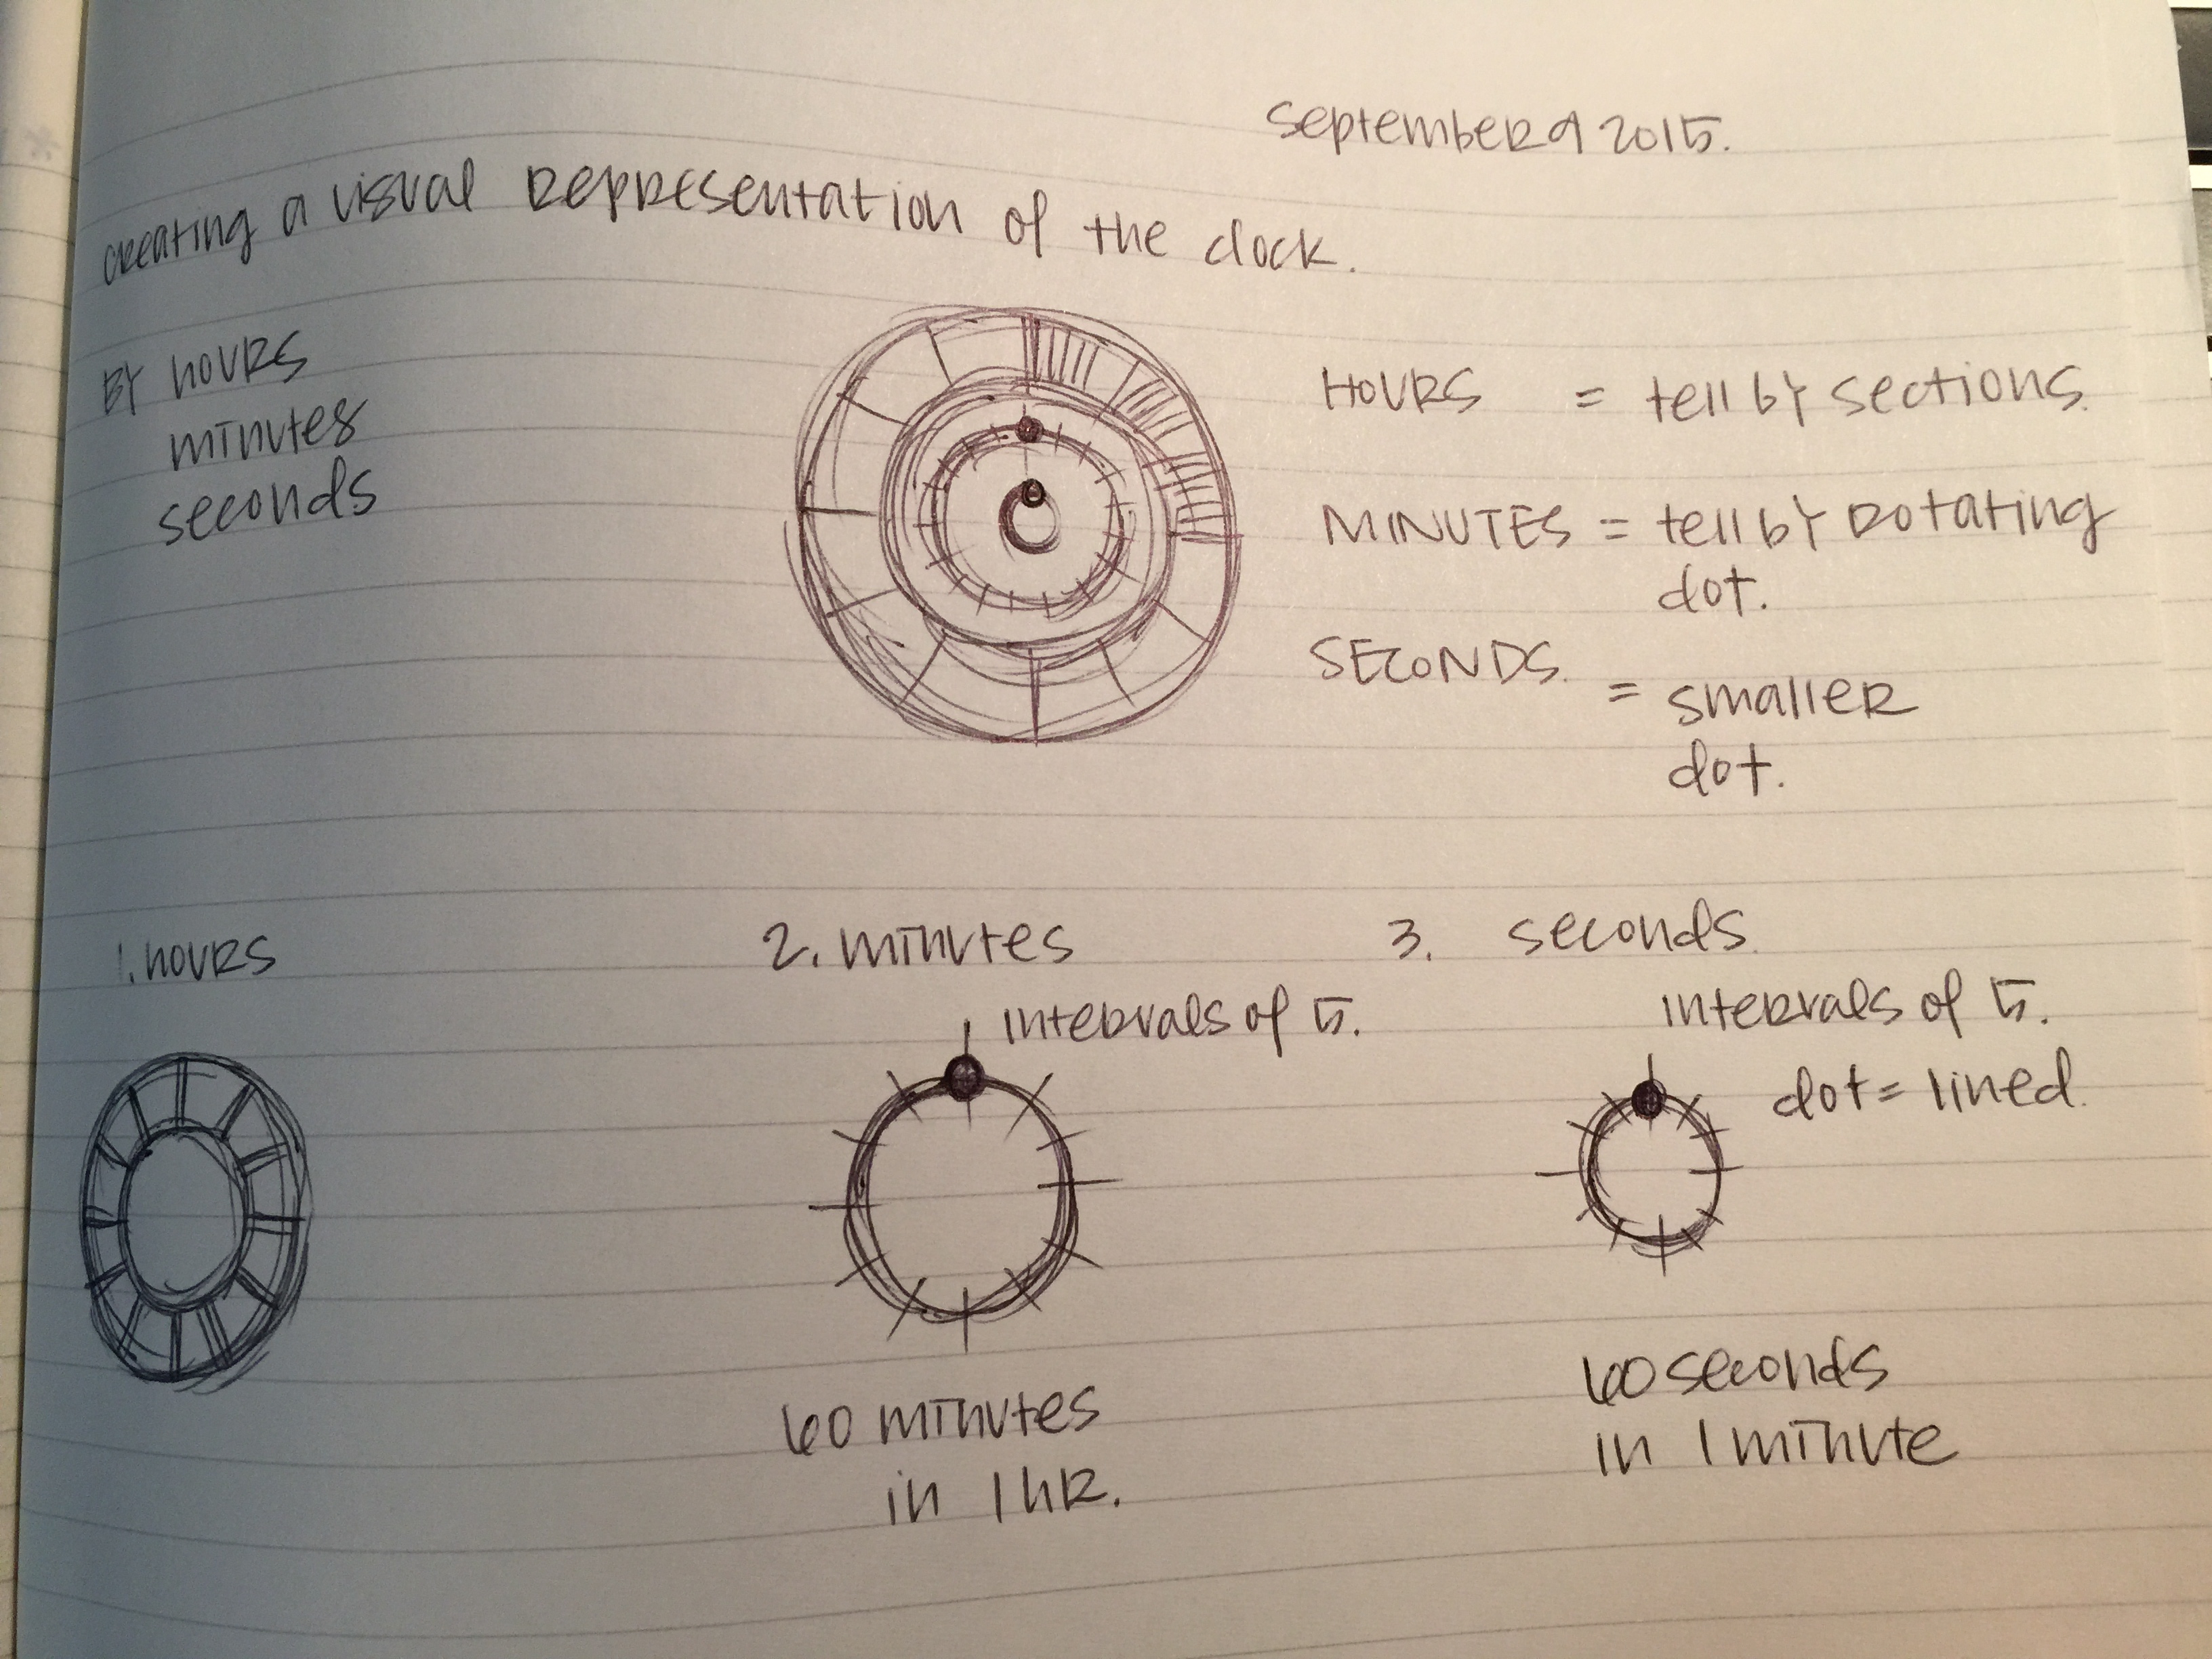 september 9 2015.
creating a visual representation of the clock.
by hours
minutes
seconds
HOURS = tell by sections.
MINUTES = tell by rotating
dot.
SECONDS. = smaller
dot.
1. hours
2. minutes
intervals of 5.
60 minutes
in 1 hr.
3. seconds.
intervals of 5.
dot = lined.
60 seconds
in 1 minute